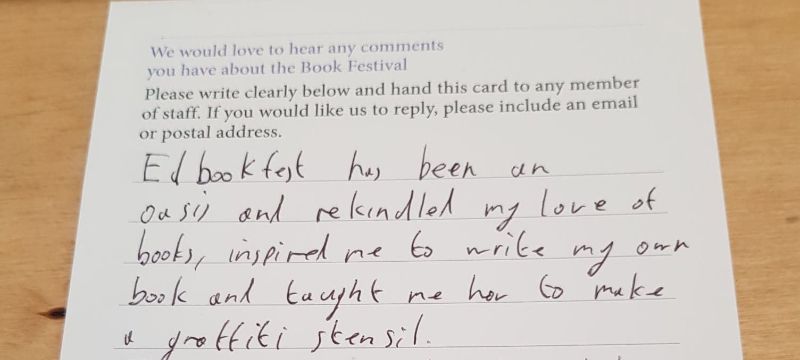 We would love to hear any comments
you have about the Book Festival
Please write clearly below and hand this card to any member
of staff. If you would like us to reply, please include an email
or postal address.
Edbookfest has been an
oasis and rekindled my love of
books, inspired me to write my own
book and taught me how to make
a graffiti stensil.